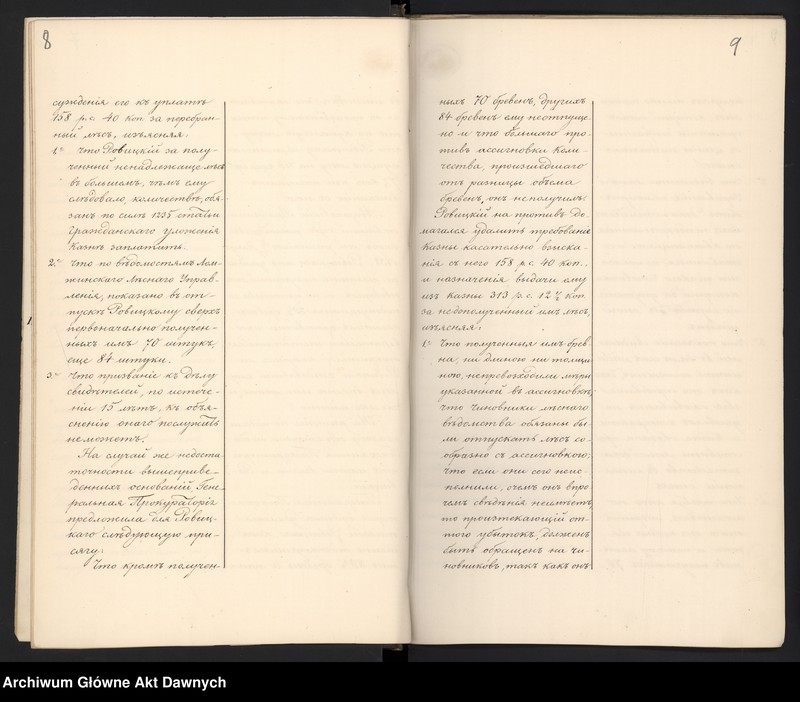 8
сужденія его къ уплатѣ
158 р.с. 40 коп за перебран-
ный лѣсъ, изъясняя:
1е Что Ровицкій за полу-
ченный ненадлежаще лѣсъ
въ большемъ, чѣмъ ему
слѣдовало, количествѣ, обя-
занъ по силѣ 1235 статьи
Гражданскаго уложенія
Казнѣ заплатить.
2е Что по вѣдомостямъ Лом-
жинскаго Лѣснаго Управ-
ленія, показано въ от-
пускъ Ровицкому сверхъ
первоначально получен-
ныхъ имъ 70 штукъ,
еще 84 штуки.
3е Что призваніе къ дѣлу
свидѣтелей, по истече-
ніи 15 лѣтъ, къ объя-
сненію онаго послужить
неможетъ.
На случай же недоста
точности вышеприве-
денныхъ основаній, Гене
ральная Прокураторія
предложила для Ровиц-
каго слѣдующую при-
сягу:
Что кромѣ получен-
9
ныхъ 70 бревенъ, другихъ
84 бревенъ ему неотпуще-
но и что большаго про-
тивъ ассигновки коли-
чества, произшедшаго
отъ разницы объема
бревенъ, онъ не получилъ.
Ровицкій на противъ до-
магался удалить требованіе
Казны касательно взыска-
нія съ него 158 р.с. 40 коп.,
и назначенія выдачи ему
изъ казны 313 р.с. 12 ½ коп.
за недополученный имъ лѣсъ,
изъясняя:
1е Что полученныя имъ брев-
на, ни длиною ни толщи
ною, непревозходили мѣры
указанной въ ассигновкѣ,
что чиновники лѣснаго
вѣдомства обязаны бы-
ли отпускать лѣсъ со-
образно съ ассигновкою;
что если они сего неис-
полнили, о чемъ онъ впро-
чемъ свѣдѣнія неимѣетъ,
то произтекающій от-
того убытокъ, долженъ
быть обращенъ на чи-
новниковъ, такъ какъ онъ
Archiwum Główne Akt Dawnych